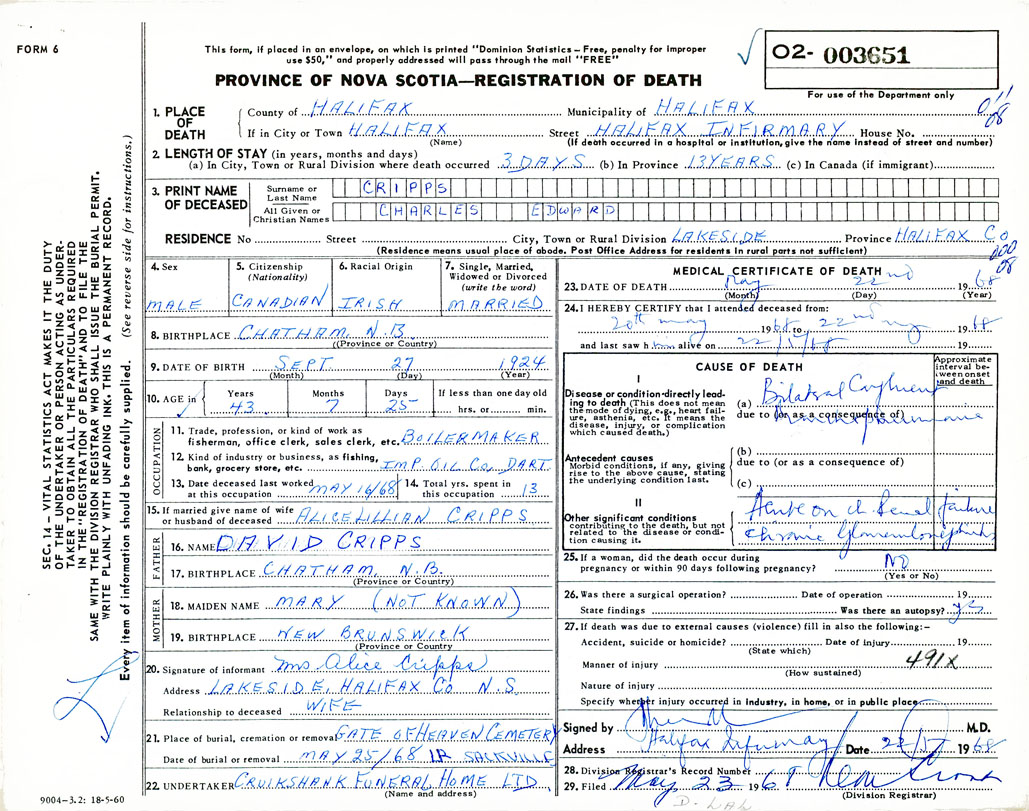 FORM 6
This form, if placed in an envelope, on which is printed "Dominion Statistics – Free, penalty for improper
use $50," and properly addressed will pass through the mail "FREE"
PROVINCE OF NOVA SCOTIA—REGISTRATION OF DEATH
02- 003651
For use of the Department only
1. PLACE OF DEATH
County of HALIFAX Municipality of HALIFAX
If in City or Town HALIFAX Street HALIFAX INFIRMARY House No.
(Name) (If death occurred in a hospital or institution, give the name instead of street and number)
2. LENGTH OF STAY (in years, months and days)
(a) In City, Town or Rural Division where death occurred 3 DAYS (b) In Province 13 YEARS (c) In Canada (if immigrant)
3. PRINT NAME OF DECEASED
Surname or Last Name CRIPPS
All Given or Christian Names CHARLES EDWARD
RESIDENCE No. Street City, Town or Rural Division LAKESIDE Province HALIFAX CO
(Residence means usual place of abode. Post Office Address for residents in rural parts not sufficient)
4. Sex MALE
5. Citizenship (Nationality) CANADIAN
6. Racial Origin IRISH
7. Single, Married, Widowed or Divorced (write the word) MARRIED
8. BIRTHPLACE CHATHAM, N.B.
(Province or Country)
9. DATE OF BIRTH SEPT 27 1924
(Month) (Day) (Year)
10. AGE in Years 43 Months 7 Days 25 If less than one day old hrs. or min.
OCCUPATION
11. Trade, profession, or kind of work as
fisherman, office clerk, sales clerk, etc. BOILERMAKER
12. Kind of industry or business, as fishing,
bank, grocery store, etc. IMP. OIL CO. DART.
13. Date deceased last worked at this occupation MAY 16/68
14. Total yrs. spent in this occupation 13
15. If married give name of wife or husband of deceased ALICE LILLIAN CRIPPS
FATHER
16. NAME DAVID CRIPPS
17. BIRTHPLACE CHATHAM, N.B.
(Province or Country)
MOTHER
18. MAIDEN NAME MARY (NOT KNOWN)
19. BIRTHPLACE NEW BRUNSWICK
(Province or Country
20. Signature of informant Mrs Alice Cripps
Address LAKESIDE, HALIFAX Co N.S.
Relationship to deceased WIFE
21. Place of burial, cremation or removal GATE OF HEAVEN CEMETERY
Date of burial or removal MAY 25/68 LR SACKVILLE
22. UNDERTAKER CRUIKSHANK FUNERAL HOME LTD
(Name and address)
MEDICAL CERTIFICATE OF DEATH
23. DATE OF DEATH May 22nd 1968
(Month) (Day) (Year)
24. I HEREBY CERTIFY that I attended deceased from:
20th May 1968 to 22nd 1968
and last saw him alive on 22/5/68 19
CAUSE OF DEATH
Approximate interval between onset and death
I
Disease or condition directly leading to death (This does not mean the mode of dying, e.g., heart failure, asthenia, etc. It means the disease, injury, or complication which caused death.)
(a) Bilateral
due to (or as a consequence of)
Antecedent causes
Morbid conditions, if any, giving rise to the above cause, stating the underlying condition last.
(b)
due to (or as a consequence of)
(c)
II
Other significant conditions contributing to the death, but not related to the disease or condition causing it.
Acute on ch. Renal failure
Chronic Glomerulonephritis
25. If a woman, did the death occur during
pregnancy or within 90 days following pregnancy? NO
(Yes or No)
26. Was there a surgical operation? Date of operation 19
State findings Was there an autopsy? yes
27. If death was due to external causes (violence) fill in also the following:–
Accident, suicide or homicide? Date of injury 19
(State which)
Manner of injury 491X
(How sustained)
Nature of injury
Specify whether injury occurred in industry, in home, or in public place
Signed by M.D.
Address Halifax Infirmary Date 22/5 1968
28. Division Registrar's Record Number
29. Filed May 23 1968
(Division Registrar)
SEC. 14 – VITAL STATISTICS ACT MAKES IT THE DUTY
OF THE UNDERTAKER OR PERSON ACTING AS UNDER-
TAKER TO OBTAIN ALL THE PARTICULARS REQUIRED
IN THE "REGISTRATION OF DEATH" AND TO FILE THE
SAME WITH THE DIVISION REGISTRAR WHO SHALL ISSUE THE BURIAL PERMIT.
WRITE PLAINLY WITH UNFADING INK. THIS IS A PERMANENT RECORD.
Every item of information should be carefully supplied. (See reverse side for instructions.)
9004–3.2: 18-5-60